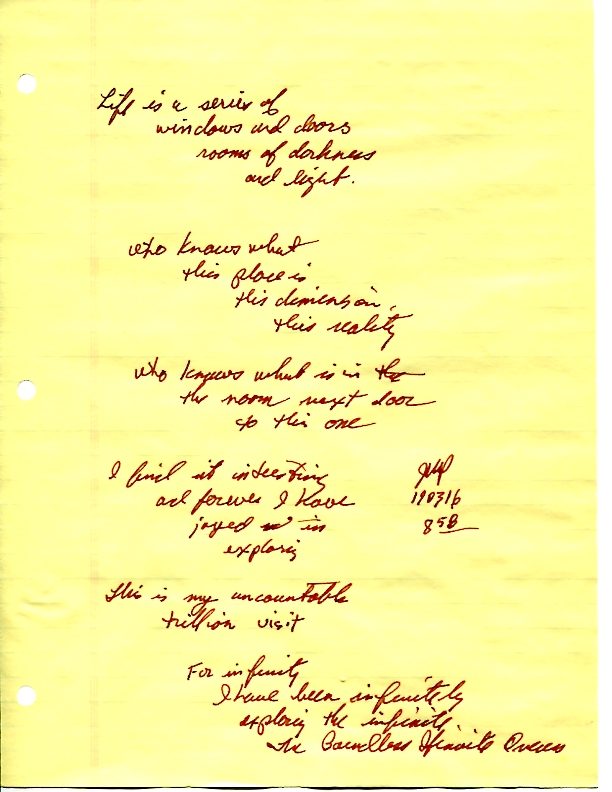 Life is a series of
windows and doors
rooms of darkness
and light.
who knows what
this place is
this dimension,
this reality
who knows what is in the
the room next door
to this one
I find it interesting
and forever I have
joyed in
exploring
110316
8 58
This is my uncountable
trillion visit
For infinity
I have been infinitely
exploring the infinite
The Boundless Infinite